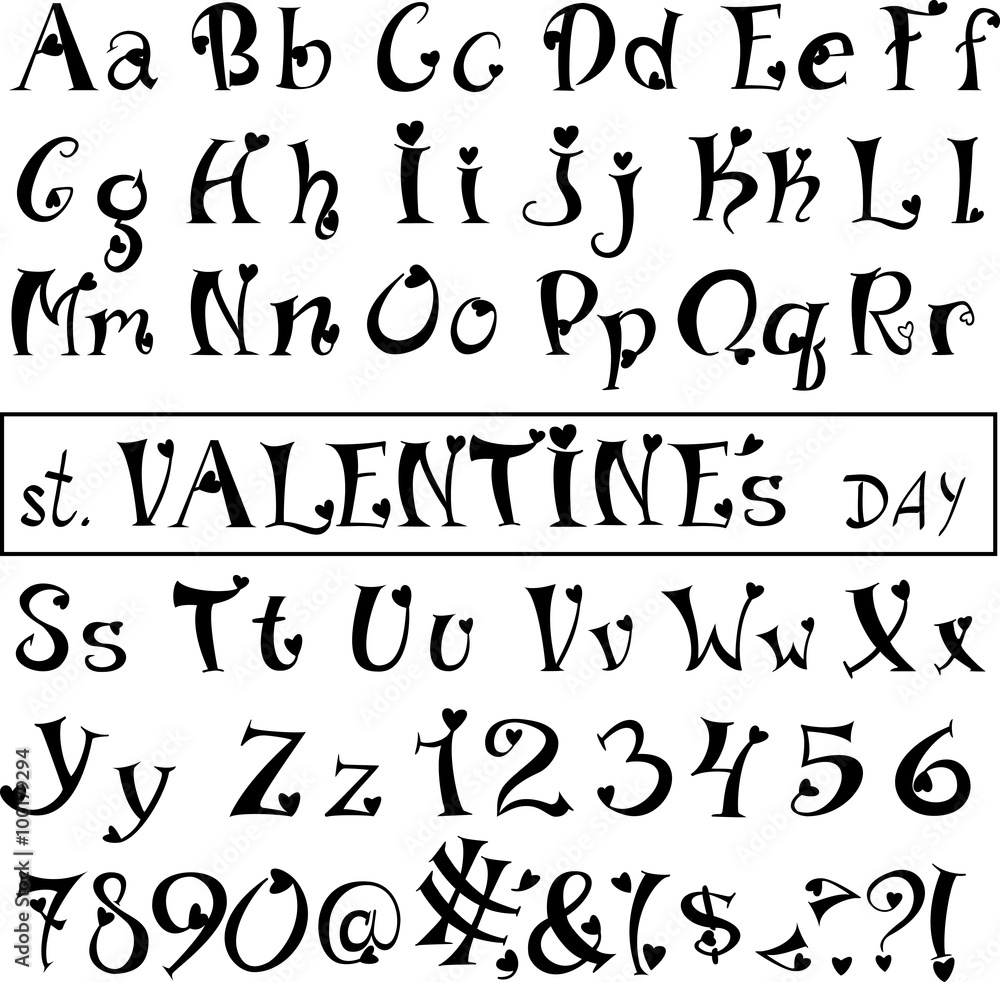 Aa Bb Cc Dd Ee Ff
Gg Hh Ii Jj Kk Ll
Mm Nn Oo Pp Qq Rr
st. VALENTINE's DAY
Ss Tt Uu Vv Ww Xx
Yy Zz 1 2 3 4 5 6
7 8 9 0 @ # & ( $ ? !
Adobe Stock | 100179294